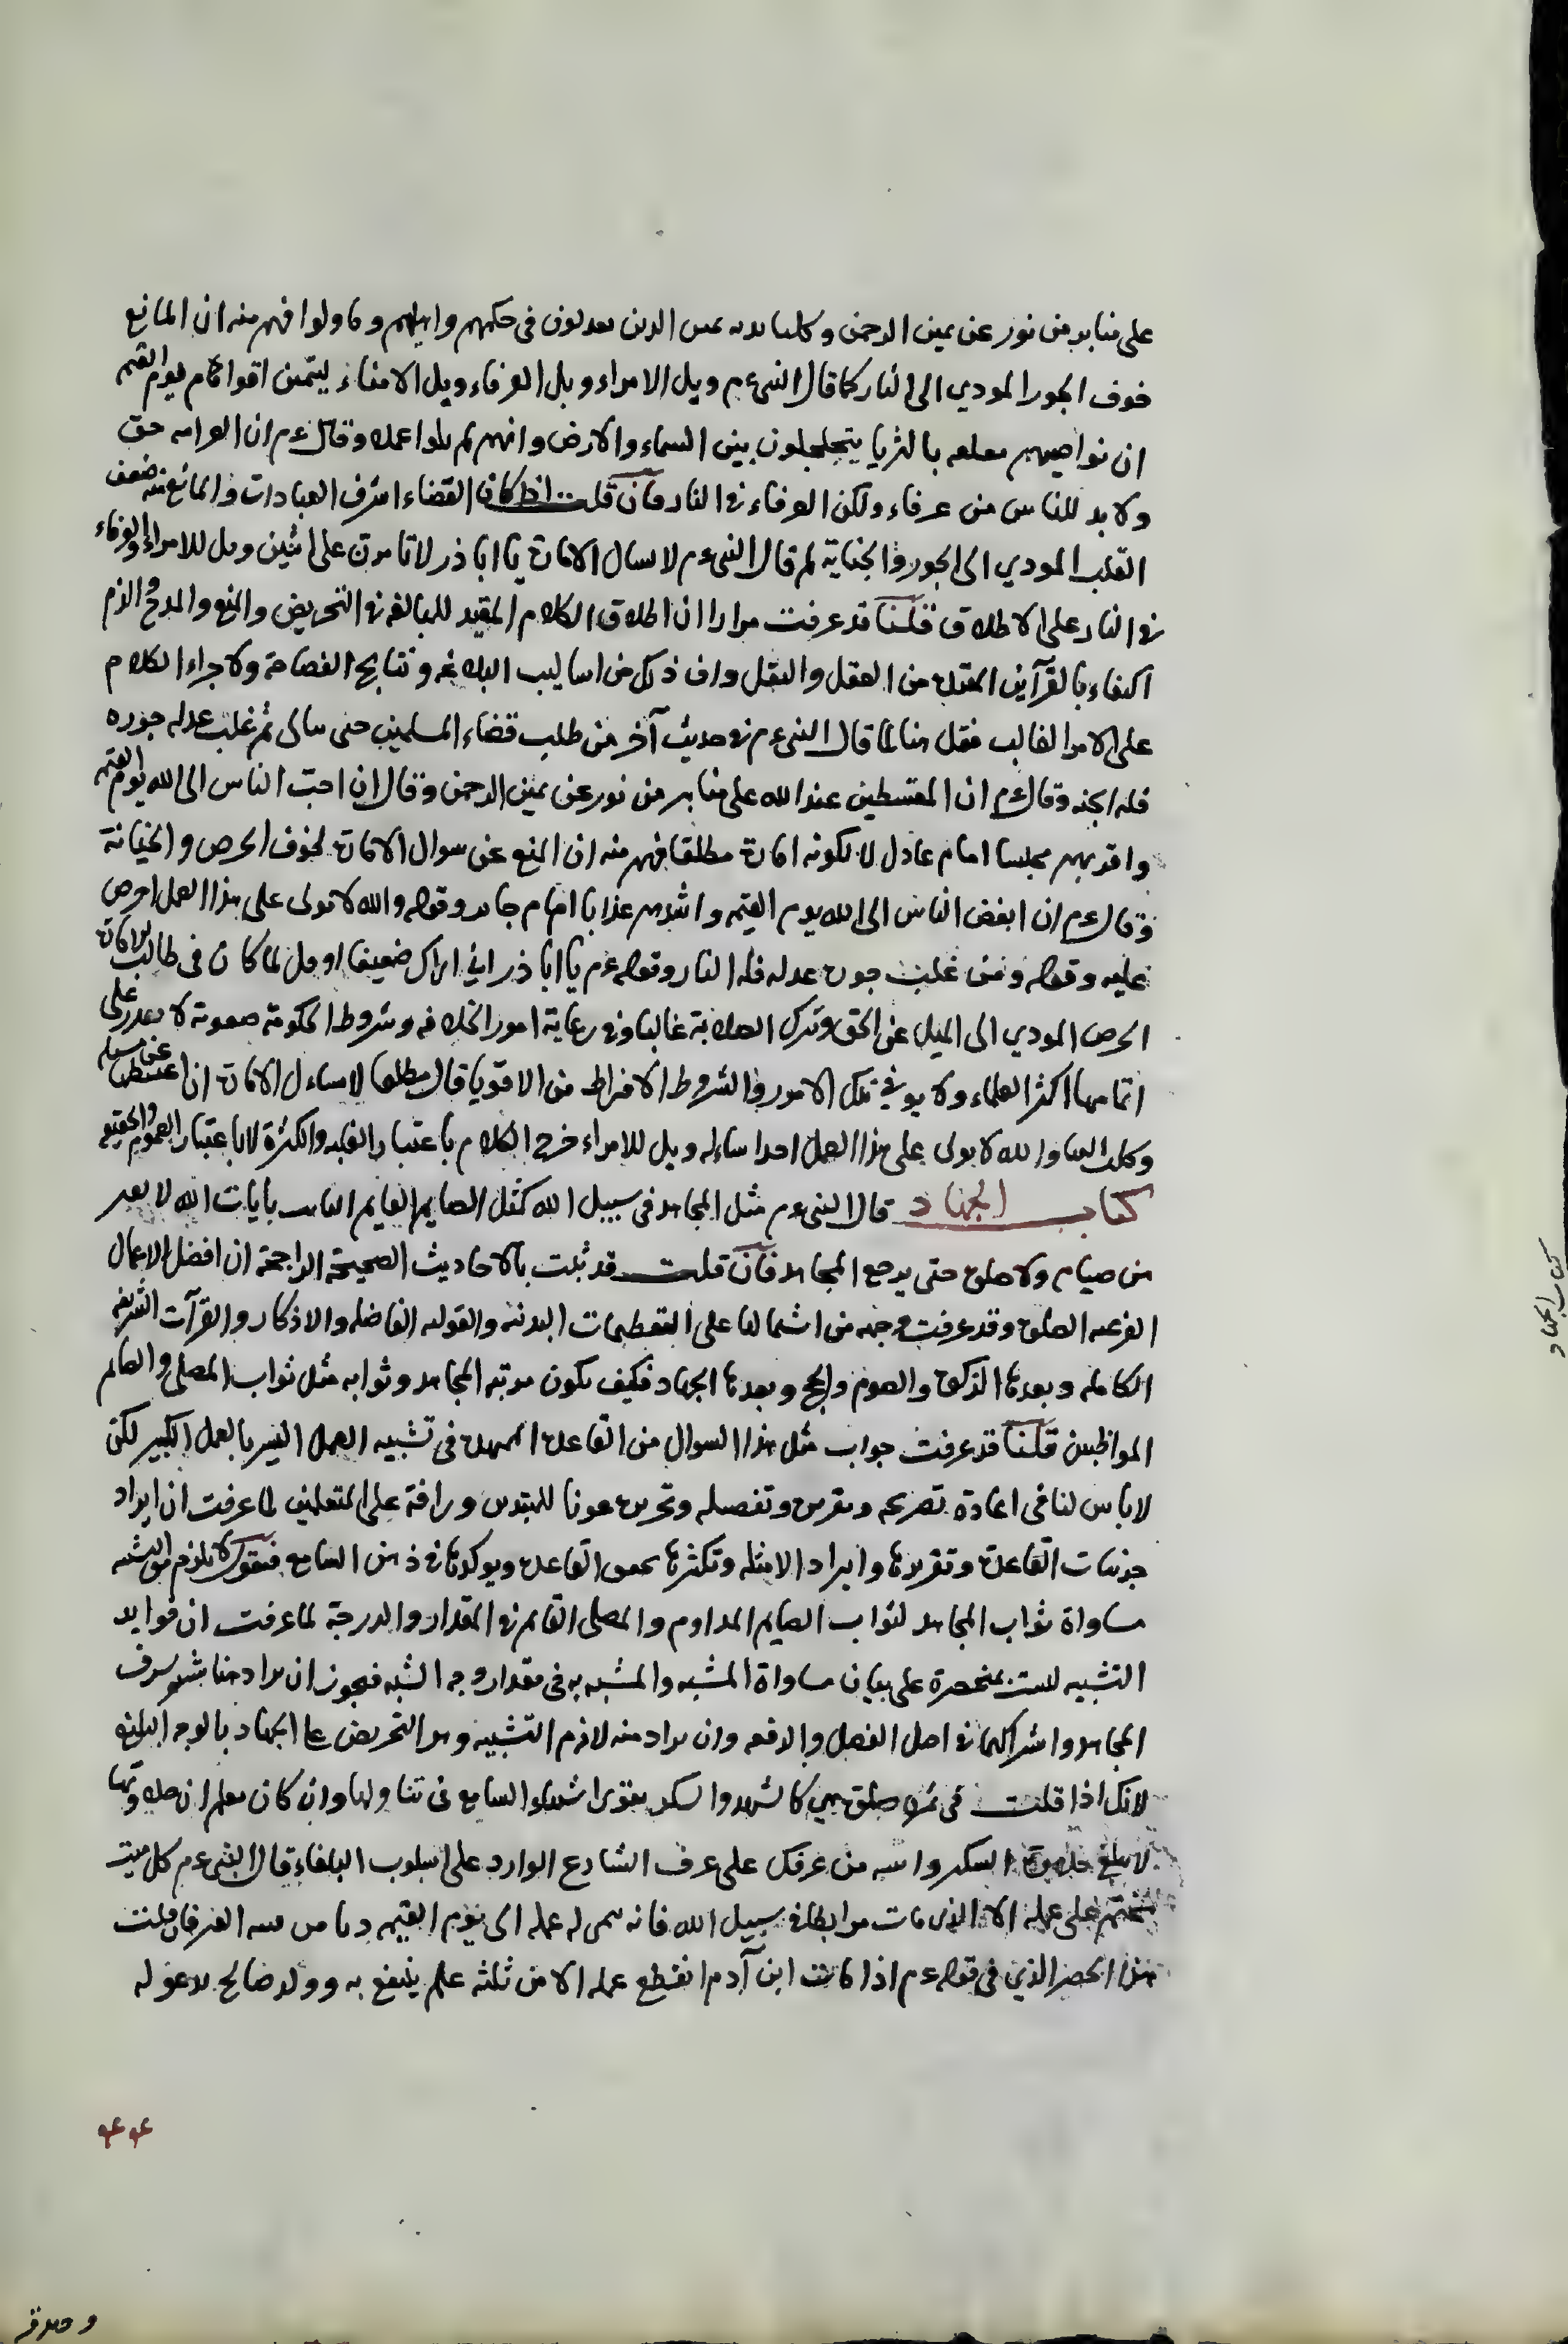 على منابر من نور عن يمين الرحمن وكلتا يديه يمين الذين يعدلون فى حكمهم واهليهم وما ولوا فهم منه ان المانع
خوف الجور المودي الى النار كما قال النبى عم ويل الامراء ويل العرفاء ويل الامناء ليتمنين اقوام يوم القيمه
ان نواصيهم معلقه بالثريا يتجلجلون بين السماء والارض وانهم لم يلوا عملا وقال عم ان العرافه حق
ولا بد للناس من عرفاء ولكن العرفاء فى النار فان قلت اذا كان القضاء اشرف العبادات والمانع منه ضعف
القلب المودي الى الجور والجناية لم قال النبى عم لا تسال الامارة يا ابا ذر لا تامرن على اثنين وويل للامراء والعرفاء
فى النار على الاطلاق قلنا قد عرفت مرارا ان اطلاق الكلام المقيد للمبالغه فى التحريض والمنع والمدح والذم
اكتفاء بالقرآين من العقل والنقل وان ذلك من اساليب البلاغه ونتايج الفصاحة ولاجراء الكلام
على الامر الغالب فقل هنا لما قال النبى عم فى حديث آخر من طلب قضاء المسلمين حتى ناله ثم غلب عدله جوره
فله الجنه وقال عم ان المقسطين عند الله على منابر من نور عن يمين الرحمن وقال ان احب الناس الى الله يوم القيمه
واقربهم مجلسا امام عادل لا لكونه امارة مطلقا فهم منه ان المنع عن سوال الامارة لخوف الحرص والخيانة
وقال عم ان ابغض الناس الى الله يوم القيمه واشدهم عذابا امام جاير وقوله والله لا نولى على هذا العمل احرص
عليه وقوله ومن غلب جوره عدله فله النار وقوله عم يا ابا ذر اني اراك ضعيفا او قل لما كان فى طالب الامارة
الحرص المودي الى الميل عن الحق وترك الصلابة غالبا وفى رعاية امور الخلافه وشروط الحكومة صعوبة لا يقدر على
اتمامها اكثر العلماء ولا يوفي تلك الامور والشروط الا افراط من الاقويا قال مطلقا لا تساءل الامارة ان اعطيتها عن مسئله
وكلت اليها والله لا نولى على هذا العمل احدا ساله وويل للامراء خرج الكلام باعتبار الغلبه والكثرة لا باعتبار العموم والحقيقه
كتاب الجهاد قال النبى عم مثل المجاهد فى سبيل الله كمثل الصايم القايم القانت بآيات الله لا يفتر
من صيام ولا صلوة حتى يرجع المجاهد فان قلت قد ثبت بالاحاديث الصحيحة الراجحة ان افضل الاعمال
الفرعيه الصلوة وقد عرفت وجهه من اشتمالها على التعظيمات البدنيه والقوليه الفاضله والاذكار والقرآت الشريفه
الكامله وبعدها الزكوة والصوم والحج وبعدها الجهاد فكيف يكون مرتبة المجاهد وثوابه مثل ثواب المصلى والصايم
المواظبين قلنا قد عرفت جواب مثل هذا السوال من القاعدة الممهدة فى تشبيه العمل اليسير بالعمل الكبير لكن
لا باس لنا فى اعادة تصريحه وتقريره وتفصيله وتحريره عونا للمبتدين ورافة على المتعلمين لما عرفت ان ايراد
جزئيات القاعدة وتقريرها وايراد الامثله وتكثرها يحقق القاعدة ويوكدها فى ذهن السامع فنقول لا يلزم من التشبيه
مساواة ثواب المجاهد لثواب الصايم المداوم والمصلى القايم فى المقدار والدرجة لما عرفت ان فوايد
التشبيه ليست بمنحصرة على بيان مساواة المشبه والمشبه به فى مقدار وجه الشبه فيجوز ان يراد هنا شرف
المجاهد واشراكهما فى اصل الفضل والرفعه وان يراد منه لازم التشبيه وهو التحريض على الجهاد بالوجه البليغ
لانك اذا قلت فى ثمرة حلوة هي كالشهد والسكر يقوى اشتهاء السامع فى تناولها وان كان يعلم ان حلاوتها
لا يبلغ حلاوة السكر وانتبه من عرفك على عرف الشارع الوارد على اسلوب البلغاء قال النبى عم كل ميت
يختم على عمله الا الذى مات مرابطا فى سبيل الله فانه ينمى له عمله الى يوم القيمه ويامن فتنه القبر فان قلت
هذا الحصر الذي فى قوله عم اذا مات ابن آدم انقطع عمله الا من ثلثه علم ينتفع به وولد صالح يدعو له
كتاب الجهاد
٤٤
وصدقه